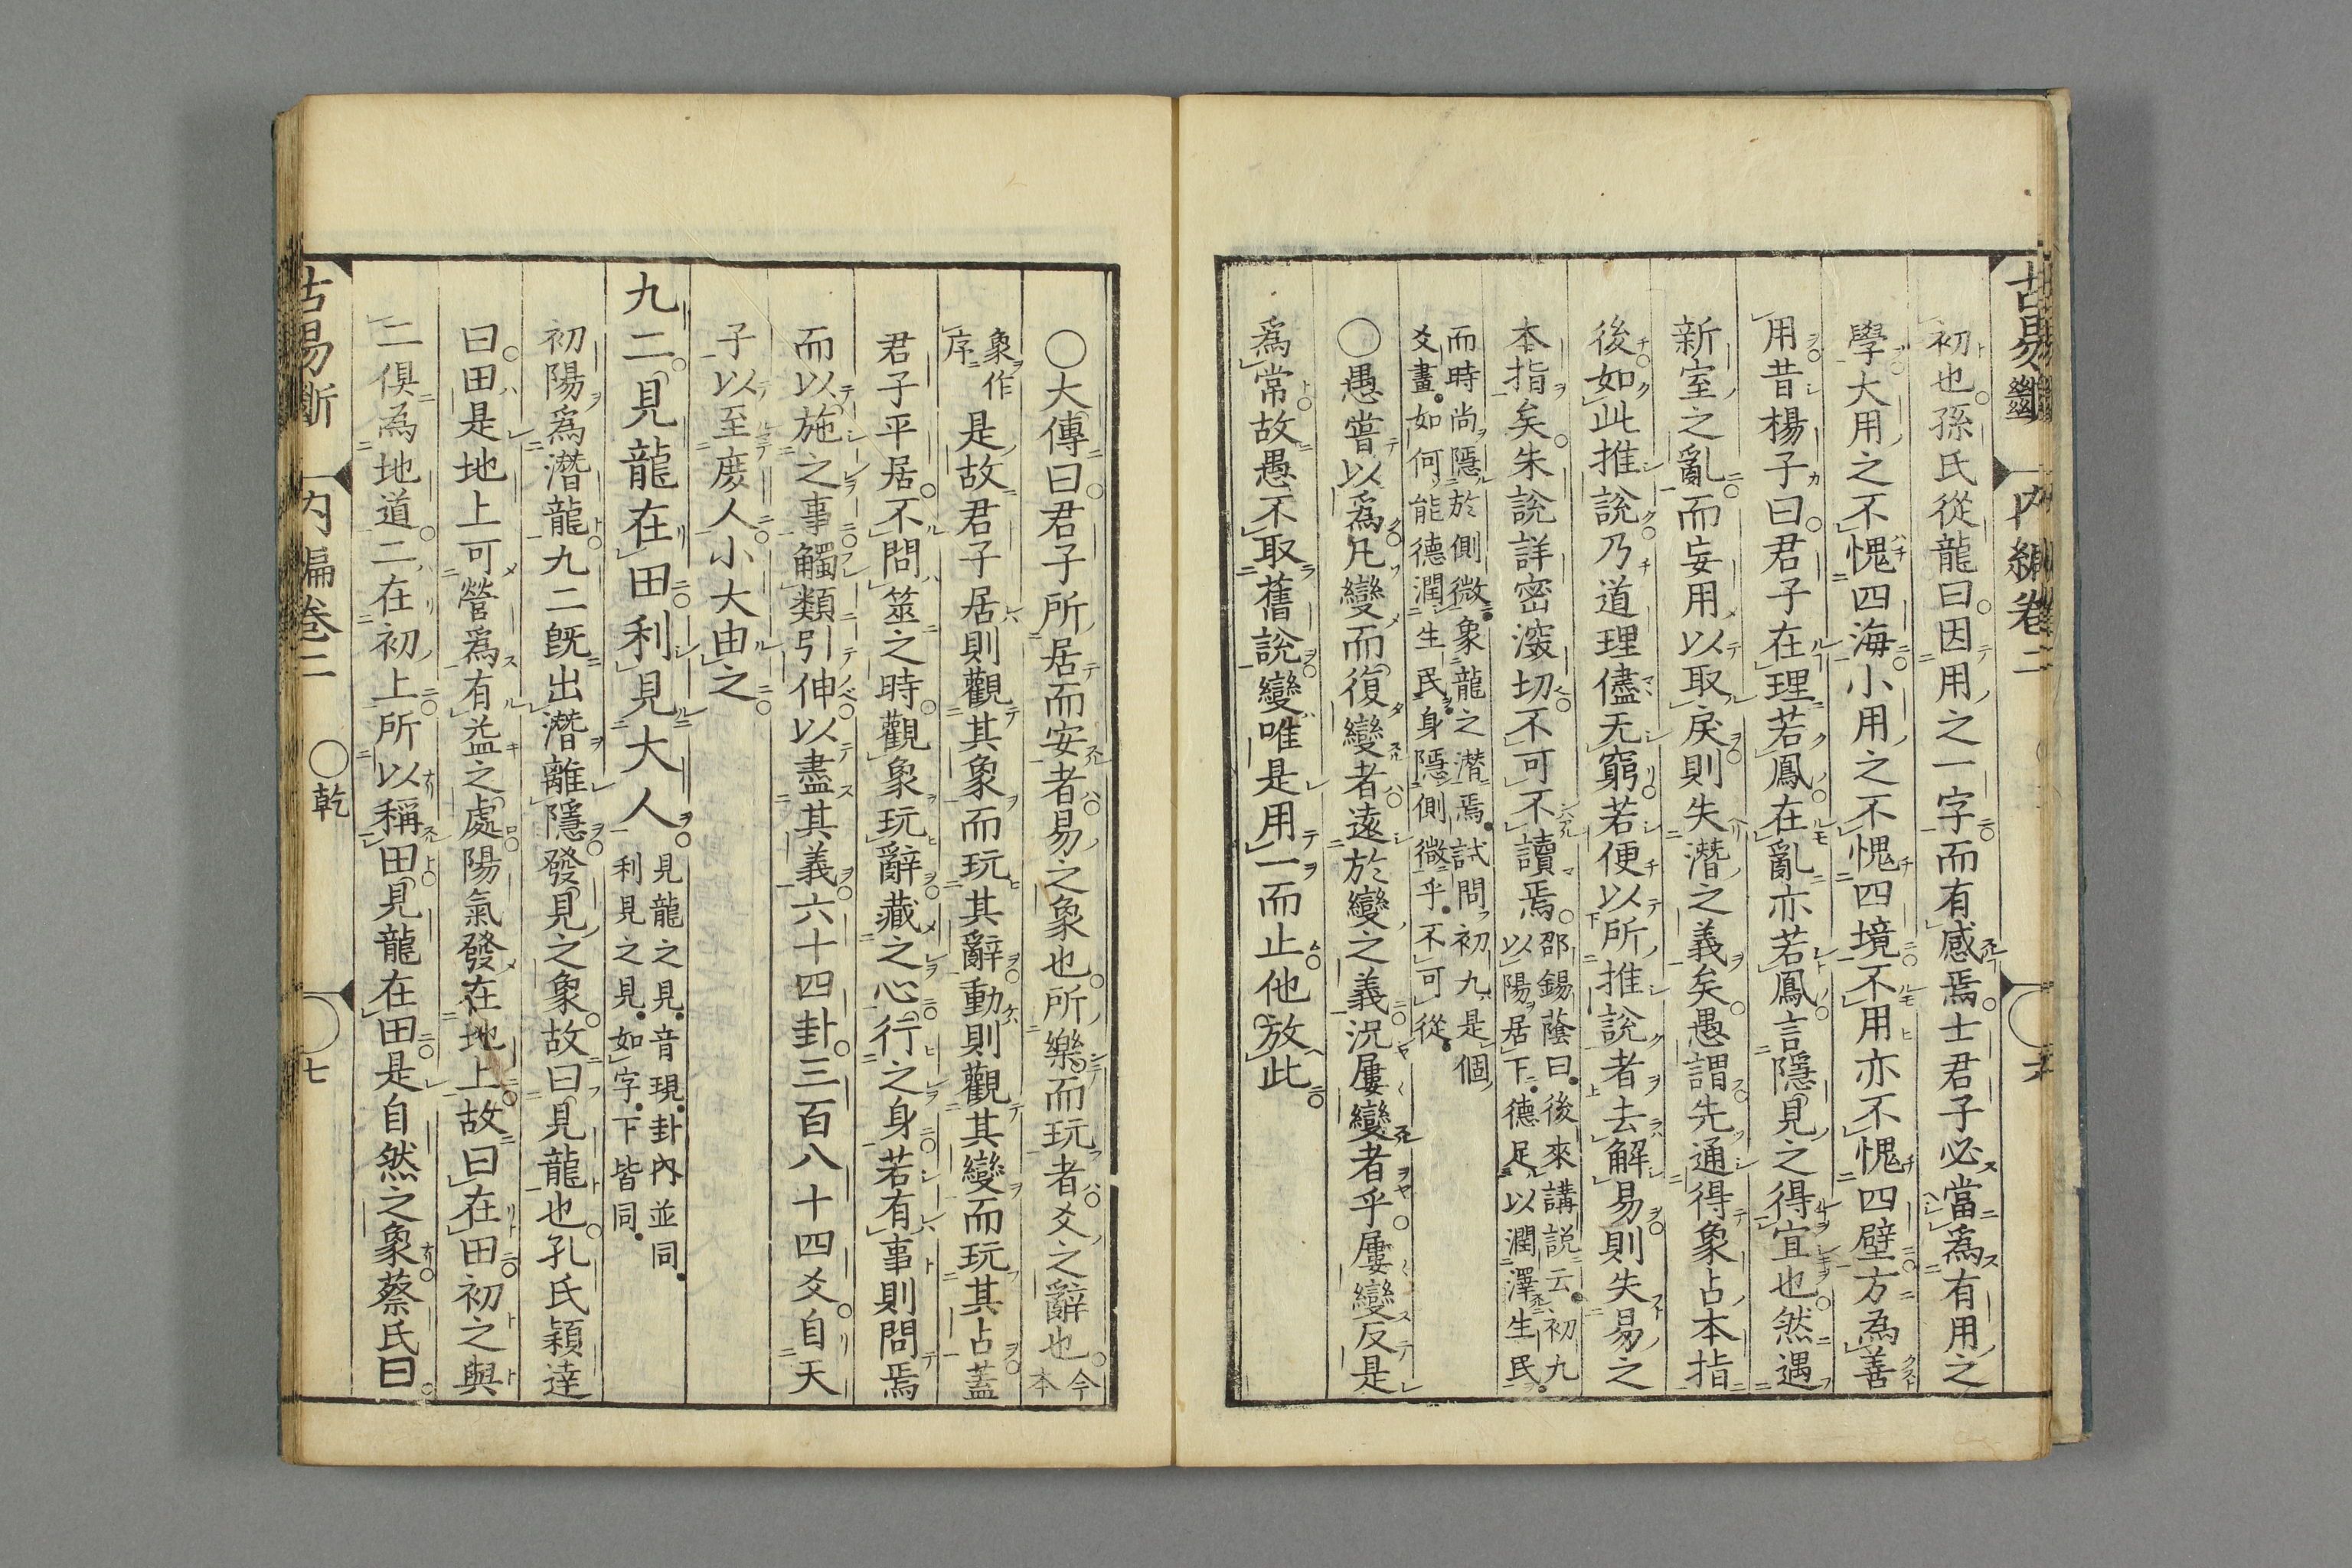 古易斷 内編卷二
初也孫氏從龍曰因用之一字而有感焉士君子必當爲有用之
學大用之不愧四海小用之不愧四境不用亦不愧四壁方為善
用昔楊子曰君子在理若鳳在亂亦若鳳言隱見之得宜也然遇
新室之亂而妄用以取戾則失潛之義矣愚謂先通得象占本指
後如此推說乃道理儘无窮若便以所推說者去解易則失易之
本指矣朱說詳密深切不可不讀焉
邵錫蔭曰後來講説云初九
以陽居下德足以潤澤生民
而時尚隱於側微象龍之潛焉試問初九是個
爻畫如何能德潤生民身隱側微乎不可從
○愚嘗以爲凡變而復變者遠於變之義況屢變者乎屢變反是
爲常故愚不取舊說變唯是用一而止他放此
○大傳曰君子所居而安者易之象也所樂而玩者爻之辭也
今本
象作
序
是故君子居則觀其象而玩其辭動則觀其變而玩其占蓋
君子平居不問筮之時觀象玩辭藏之心行之身若有事則問焉
而以施之事觸類引伸以盡其義六十四卦三百八十四爻自天
子以至庶人小大由之
九二見龍在田利見大人
見龍之見音現卦內並同
利見之見如字下皆同
初陽爲潛龍九二旣出潛離隱發見之象故曰見龍也孔氏穎達
曰田是地上可營爲有益之處陽氣發在地上故曰在田初之與
二俱為地道二在初上所以稱田見龍在田是自然之象蔡氏曰
古易斷 内編卷二 ○乾 七